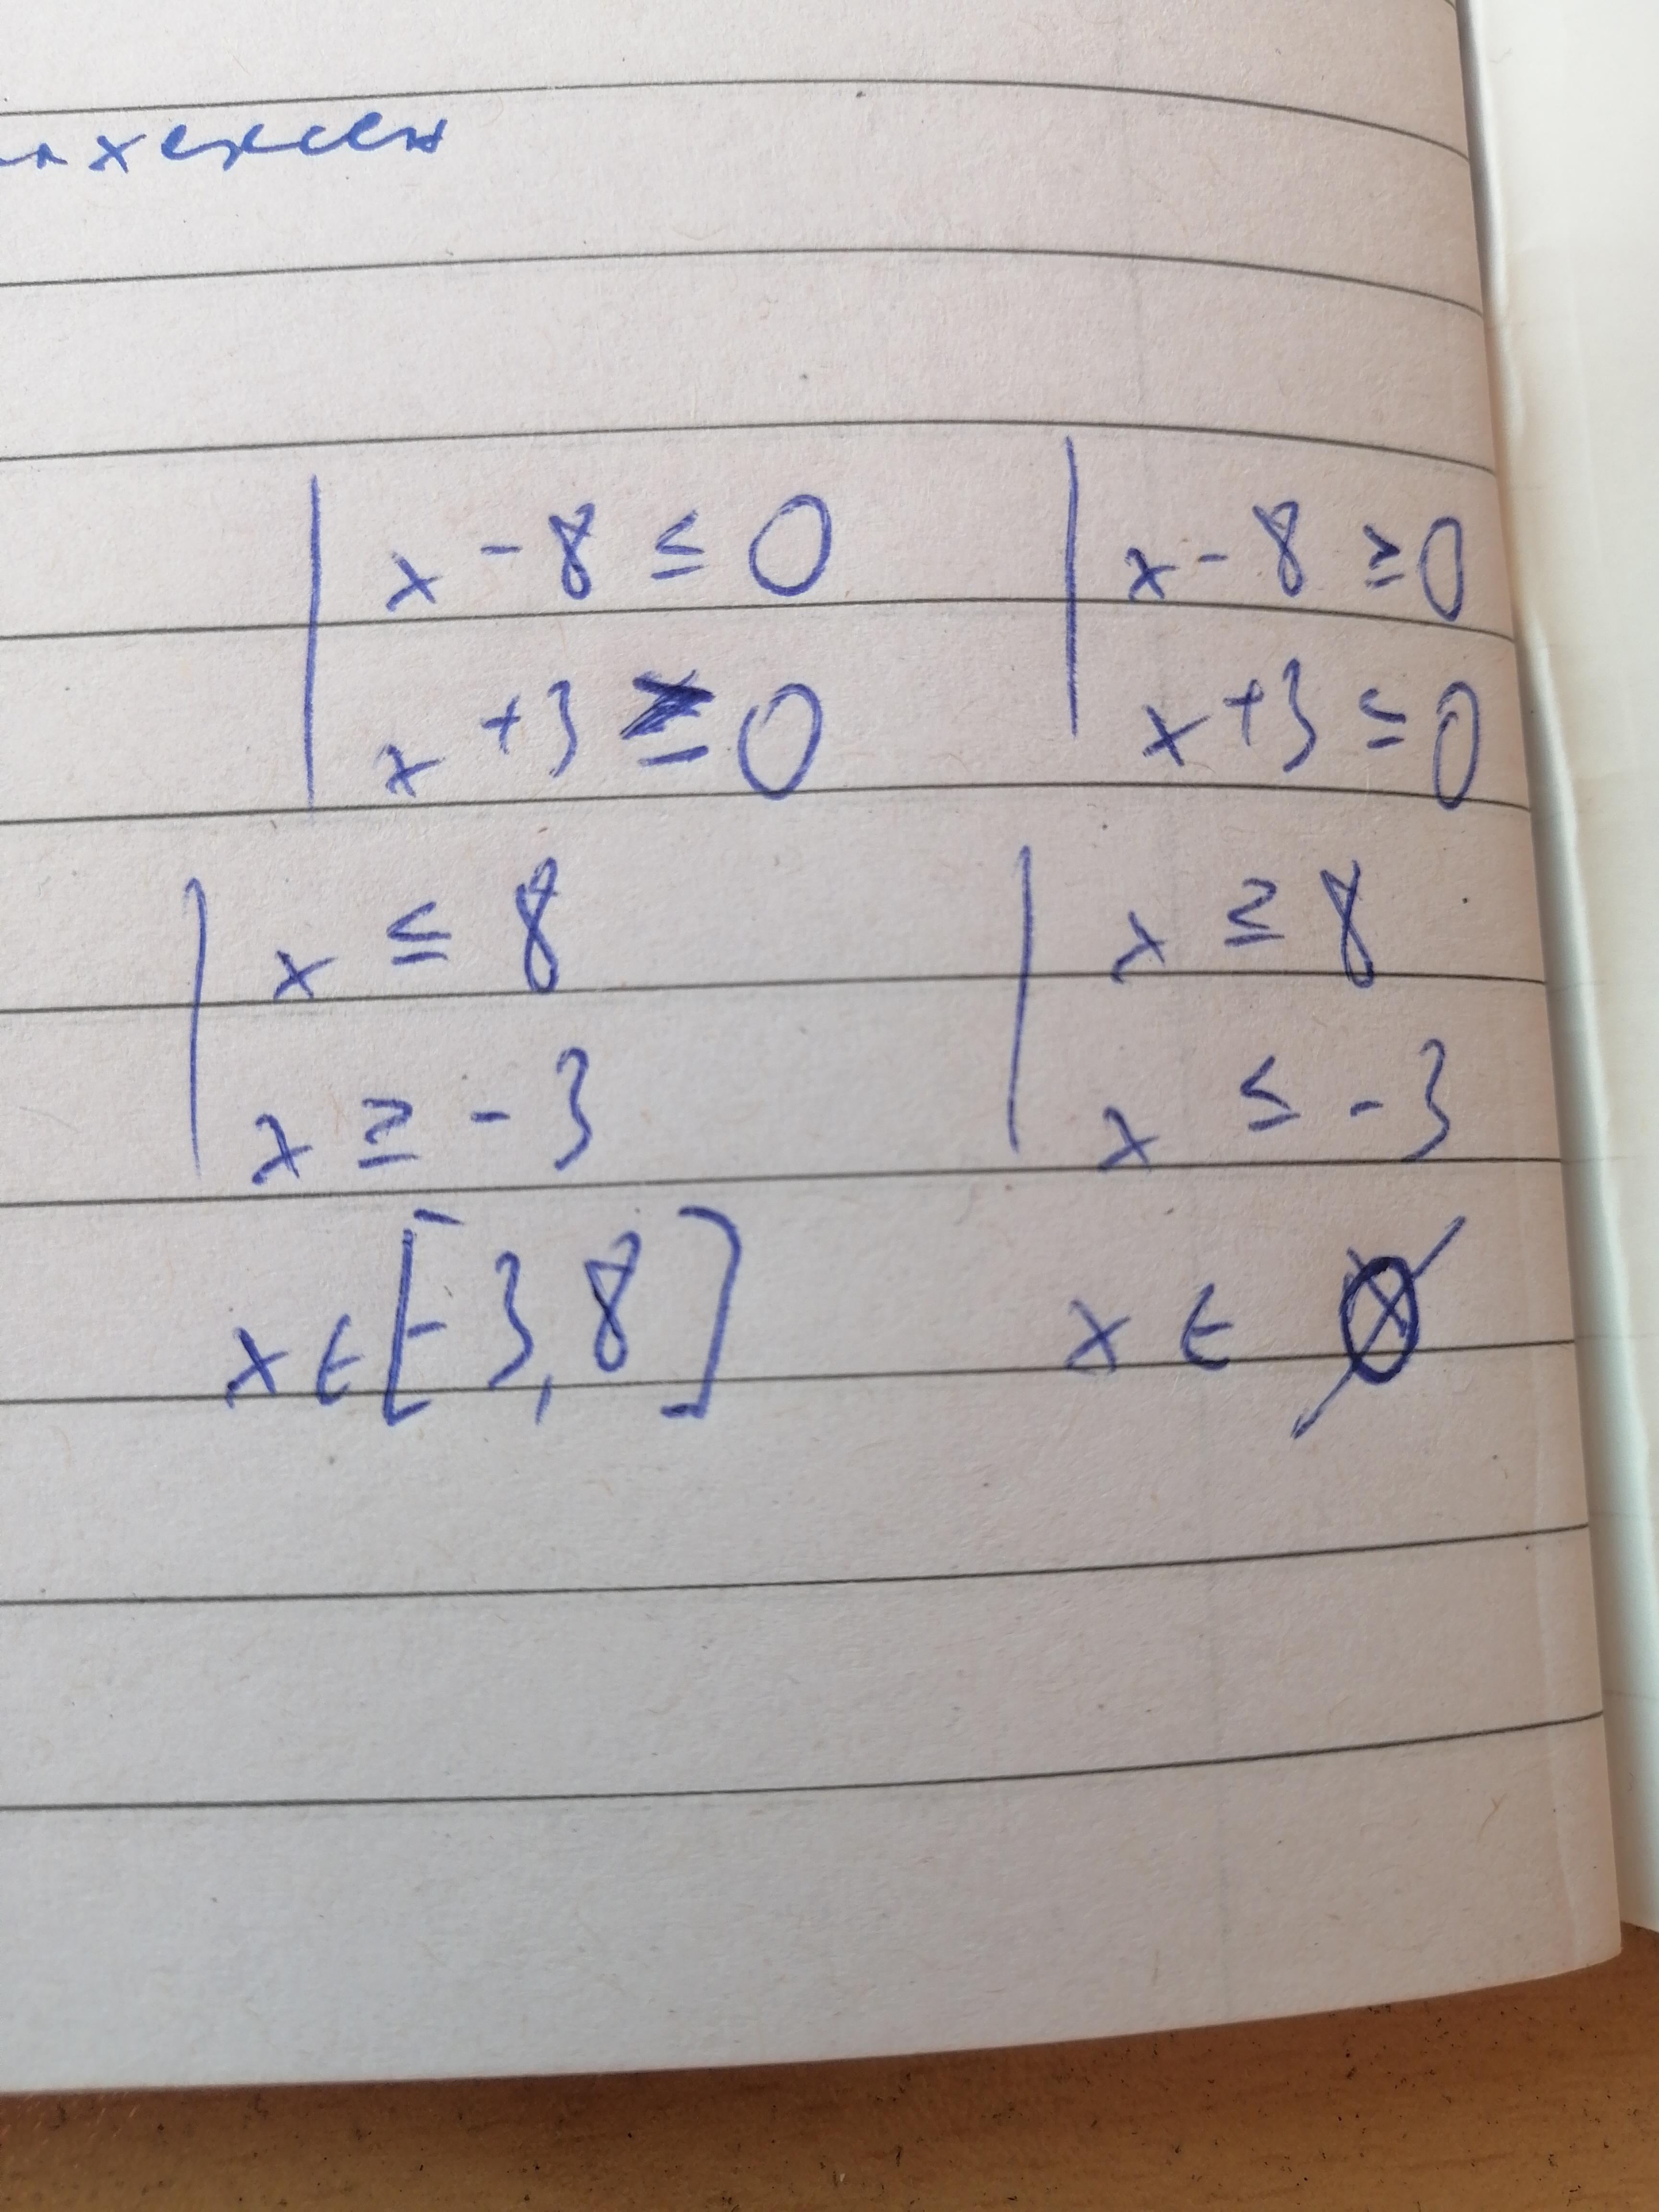 | x - 8 ≤ 0 | x - 8 ≥ 0
| x + 3 ≥ 0 | x + 3 ≤ 0
| x ≤ 8 | x ≥ 8
| x ≥ -3 | x ≤ -3
x ∈ [-3, 8] x ∈ Ø